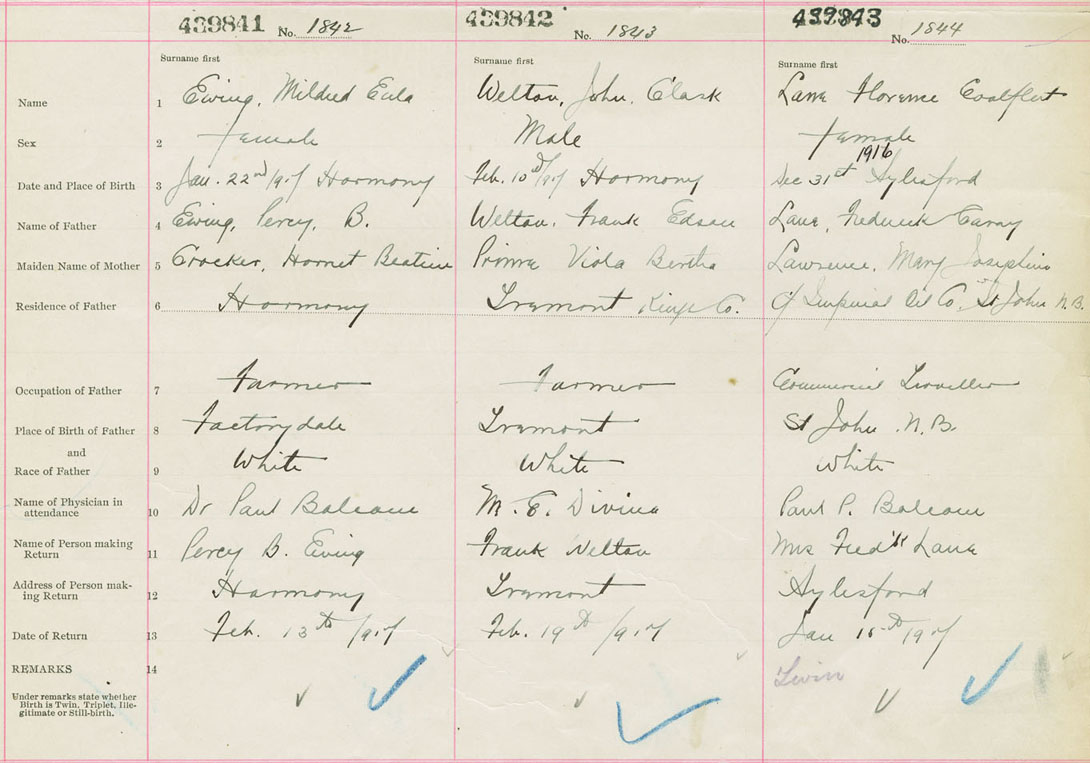 439841 No. 1842 439842 No. 1843 439843 No. 1844
Surname first Surname first Surname first
Name 1 Ewing, Mildred Eula Welton, John, Clark Lane Florence Coalfleet
Sex 2 Female Male Female
1916
Date and Place of Birth 3 Jan. 22nd/917 Harmony Feb. 10th/917 Harmony Dec 31st Aylesford
Name of Father 4 Ewing, Percy, B. Welton, Frank Edson Lane, Frederick
Maiden Name of Mother 5 Crocker, Beatrice Viola Bertha Lawrence, Mary Josephine
Residence of Father 6 Harmony Tremont Kings Co. of Imperial Oil Co. St John N.B.
Occupation of Father 7 Farmer Farmer Commercial Traveller
Place of Birth of Father 8 Factorydale Tremont St John N.B.
and
Race of Father 9 White White White
Name of Physician in
attendance 10 Dr Paul Balcom M. E. Paul P. Balcom
Name of Person making
Return 11 Percy B. Ewing Frank Welton Mrs Fred'k Lane
Address of Person mak-
ing Return 12 Harmony Tremont Aylesford
Date of Return 13 Feb. 13th/917 Feb. 19th/917 Jan 15th/917
REMARKS 14 Twin
Under remarks state whether
Birth is Twin, Triplet, Ille-
gitimate or Still-birth.